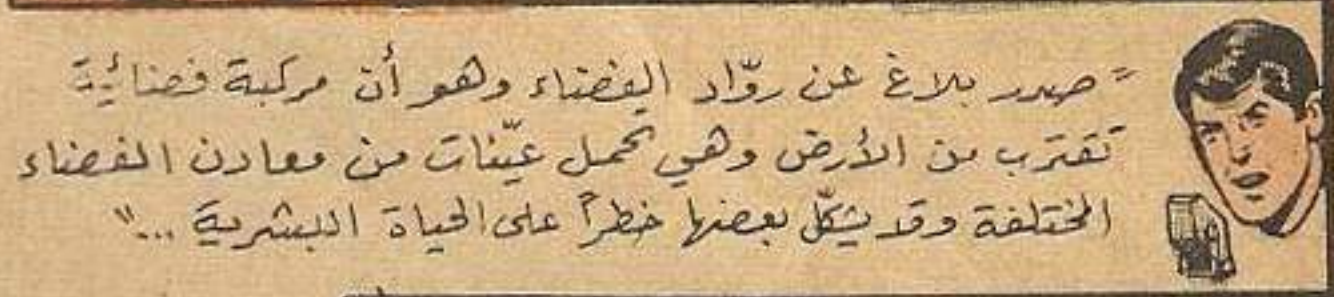 "صدر بلاغ عن روّاد الفضاء وهو أن مركبة فضائية
تقترب من الأرض وهي تحمل عيّنات من معادن الفضاء
المختلفة وقد يشكّل بعضها خطراً على الحياة البشرية ..."